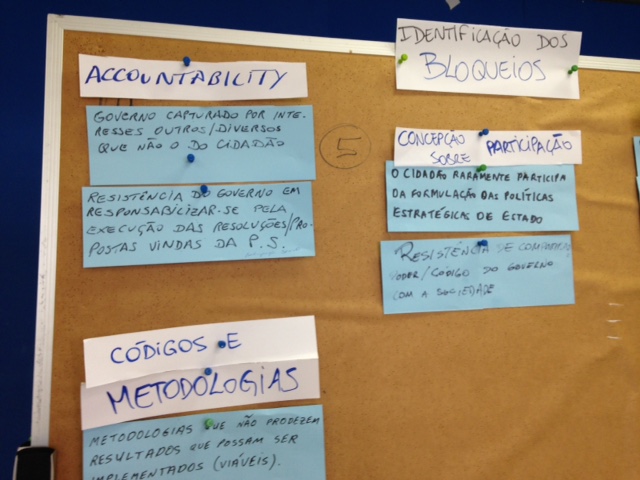 IDENTIFICAÇÃO DOS
BLOQUEIOS
ACCOUNTABILITY
GOVERNO CAPTURADO POR INTE-
RESSES OUTROS/DIVERSOS
QUE NÃO O DO CIDADÃO
RESISTÊNCIA DO GOVERNO EM
RESPONSABILIZAR-SE PELA
EXECUÇÃO DAS RESOLUÇÕES/PRO-
POSTAS VINDAS DA P.S.
5
CONCEPÇÃO
SOBRE PARTICIPAÇÃO
O CIDADÃO RARAMENTE PARTICIPA
DA FORMULAÇÃO DAS POLÍTICAS
ESTRATÉGICAS DE ESTADO
RESISTÊNCIA SE
PODER/CÓDIGO DO GOVERNO
COM A SOCIEDADE
CÓDIGOS E
METODOLOGIAS
METODOLOGIAS QUE NÃO PRODUZEM
RESULTADOS QUE POSSAM SER
IMPLEMENTADOS (VIÁVEIS).